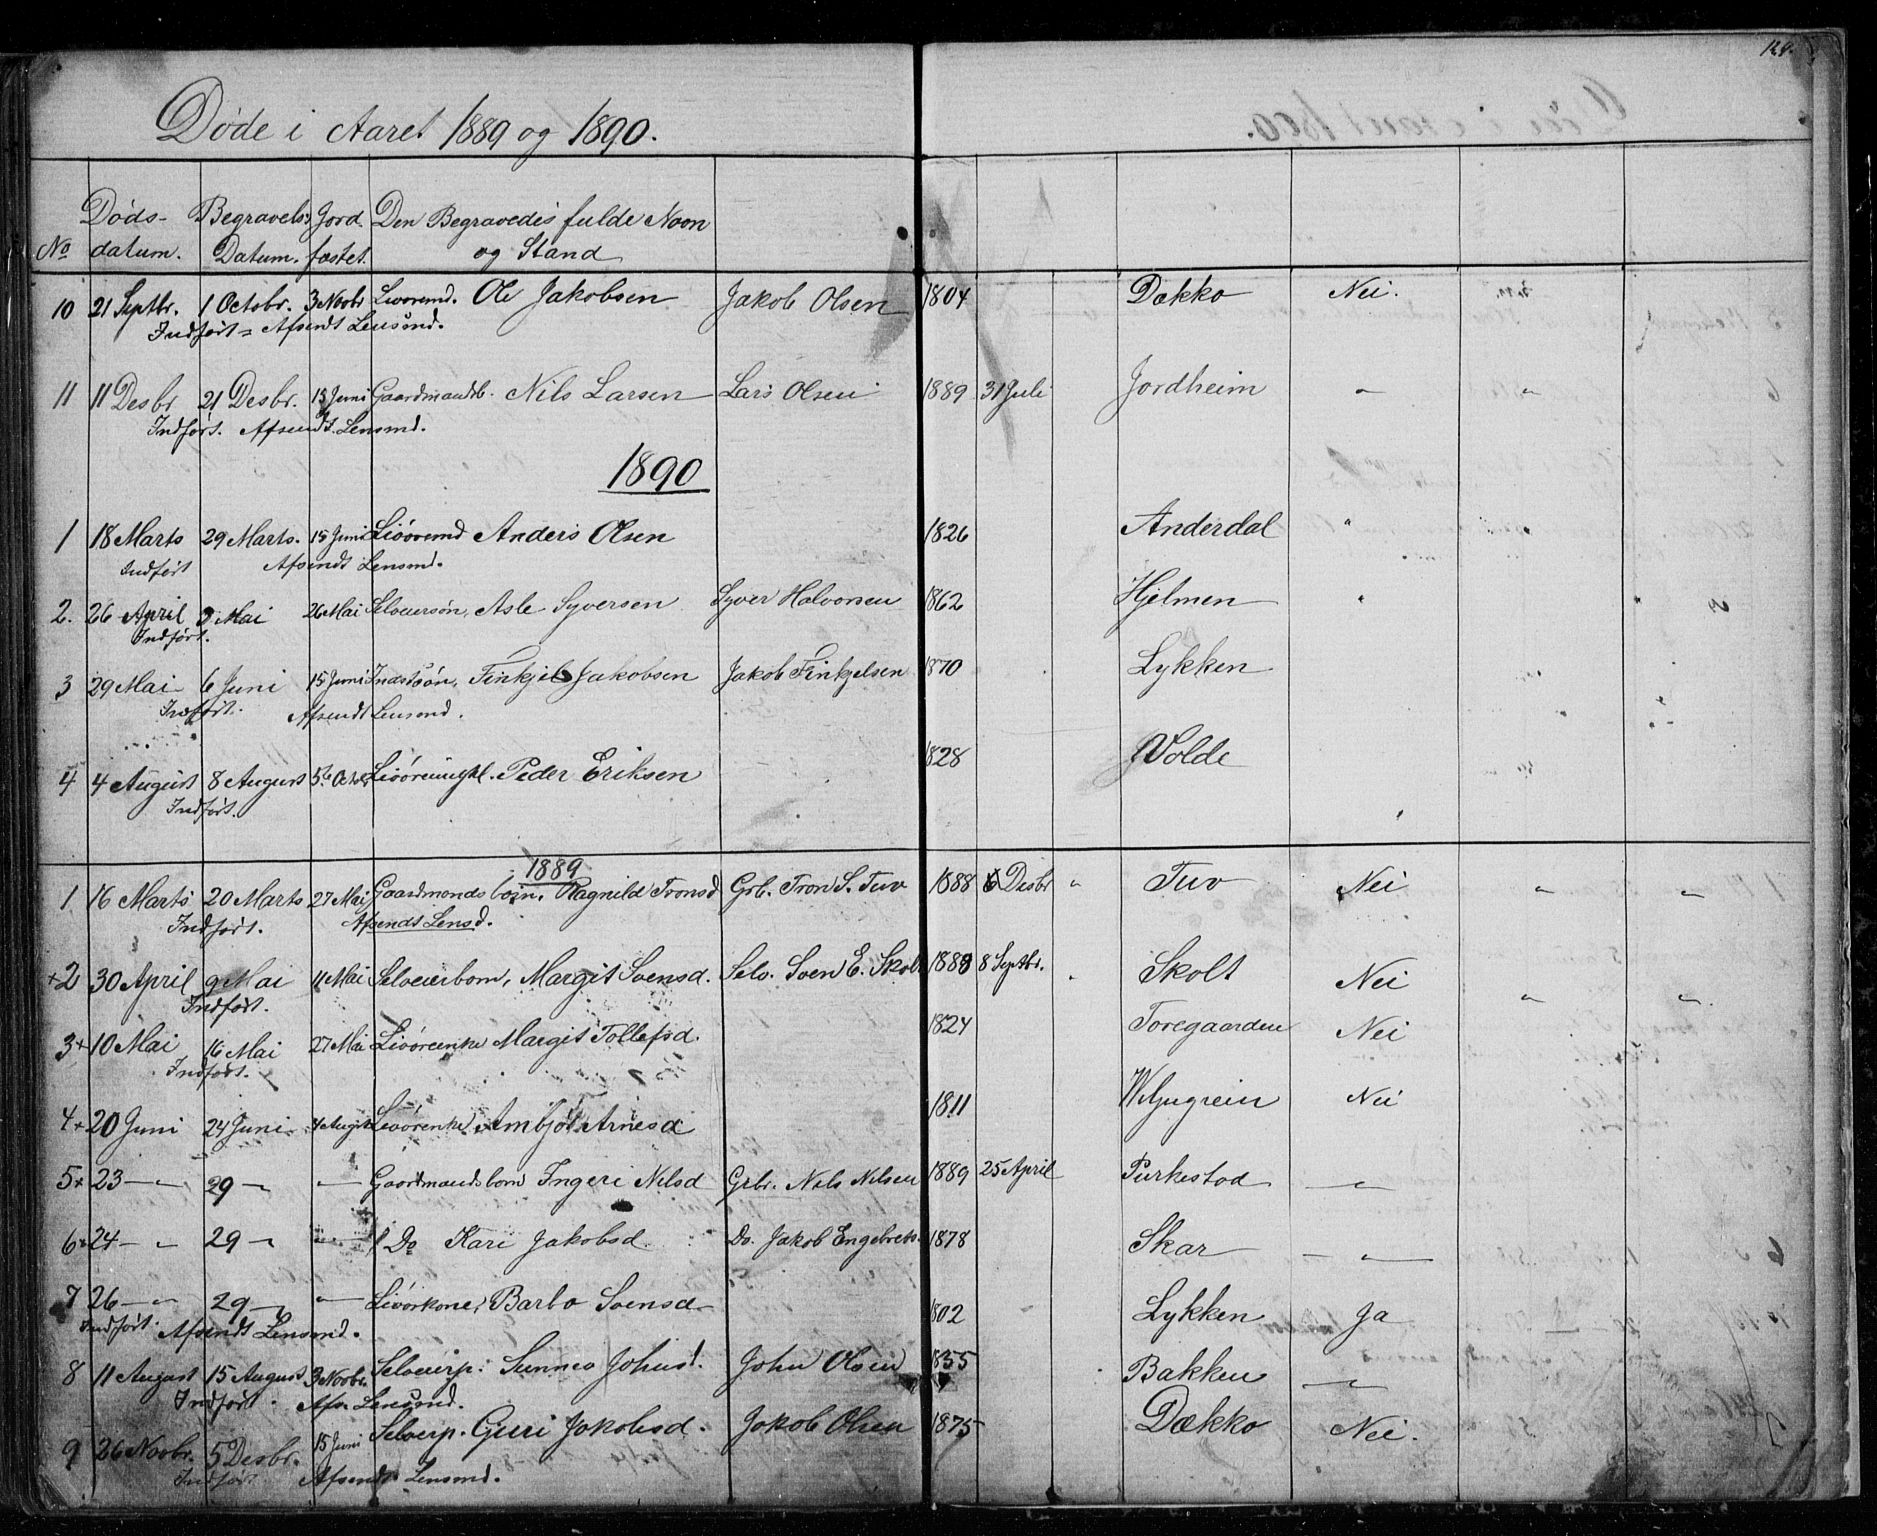 129.
Døde i Aaret 1889 og 1890.
No Døds-datum. Begravels: Datum. Jord fæstet. Den Begravedes fulde Navn og Stand
10 21 Septbr. 1 Octobr. 3 Novbr Livøremd. Ole Jakobsen Jakob Olsen 1804 Dækko Nei.
Indført = Afsendt Lensmd.
11 11 Desbr 21 Desbr. 15 Juni Gaardmandsb. Nils Larsen Lars Olsen 1889 31 Juli Jordheim " "
Indført. Afsendt Lensmd.
1890
1 18 Marts 29 Marts. 15 Juni Livøremd Anders Olsen 1826 Anderdal "
Indført Afsendt Lensmd.
2. 26 April 3 Mai 26 Mai Selveiersøn, Asle Syversen Syver Halvorsen 1862 Hjelmen "
Indført.
3 29 Mai 6 Juni 15 Juni Indstsøn, Finkjel Jakobsen Jakob Finkjelsen 1870 Lykken
Indført. Afsendt Lensmd.
4 4 August 8 August 5 Octob Peder Eriksen 1828 Volde
Indført.
1889
1 16 Marts 20 Marts 27 Mai Gaardmandsbarn, Ragnild Tronsd Grb. Tron S. Tuv 1888 6 Desbr " Tuv Nei " "
Indført. Afsendt Lensd.
+2 30 April 9 Mai 11 Mai Selveierbarn, Margit Svensd. Selv. Sven E. Skolt 1888 8 Septbr. Skolt Nei " "
Indført.
3+ 10 Mai 16 Mai 27 Mai Livøreenke Margit Tollefsd. 1824 Toregaarden Nei
Indført.
4+ 20 Juni 24 Juni 4 August Livørenke Ambjør Arnesd 1811 Wiljugrein Nei
5+ 23 — " 29 — " — " Gaardmandsbarn Ingeri Nilsd Grbr. Nils Nilsen 1889 25 April Purkestad — "
6+ 24 — " 29 — " — " Do Kari Jakobsd Do. Jakob Engebrets. 1878 Skar — "
7 26 — " 29 — " — " Livørkone, Barbo Svensd 1802 Lykken Ja
Indført. Afsendt Lensmd.
8 11 August 15 August 3 Novbr. Selveierp. Sunnev Johnsd. John Olsen 1855 Bakken — "
Indført. Afs. Lensmd.
9 26 Novbr. 5 Desbr. 15 Juni Selveierp. Guri Jakobsd. Jakob Olsen 1875 Dækko Nei.
Indført Afsendt Lensmd.